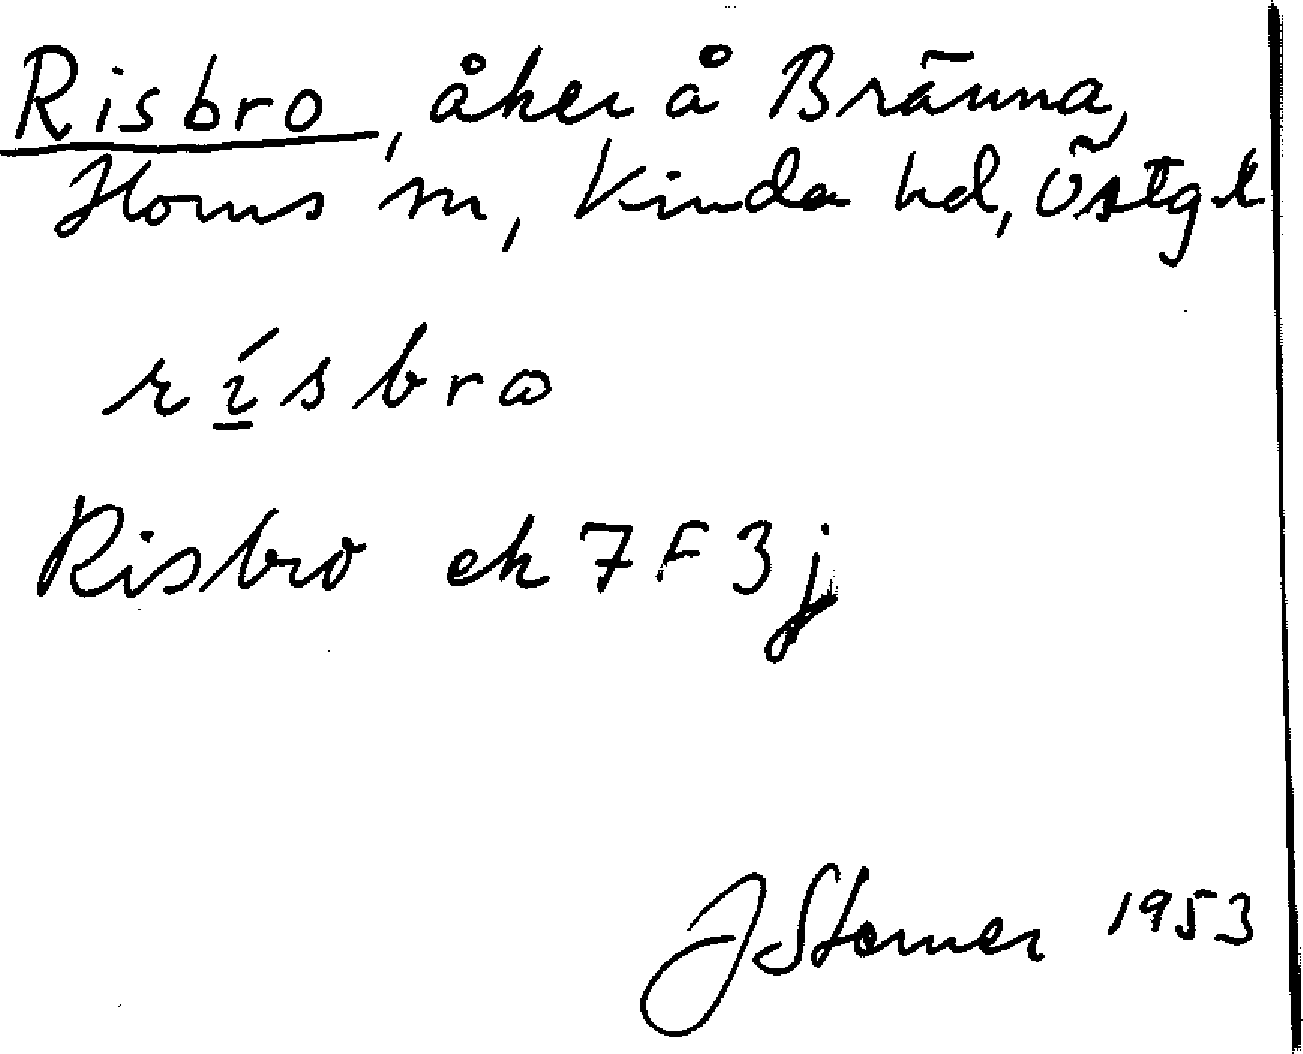 Risbro, åker å Bränna,
Horns sn, Kinda hd, Östgl
rísbrω
Risbro ek 7F3j
J Sterner 1953